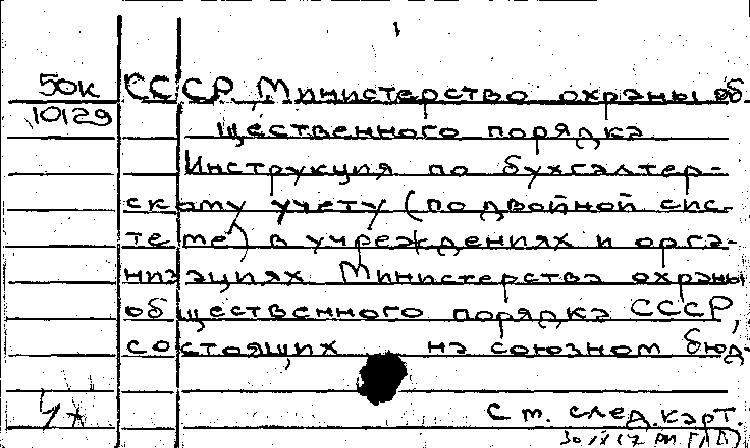 50к СССР. Министерство охраны об-
10129
щественного порядка
Инструкция по бухгалтер-
скому учету (по двойной сис-
теме) в учреждениях и орга-
низациях Министерства охраны
общественного порядка СССР,
состоящих на союзном бюд-
См. след. карт.